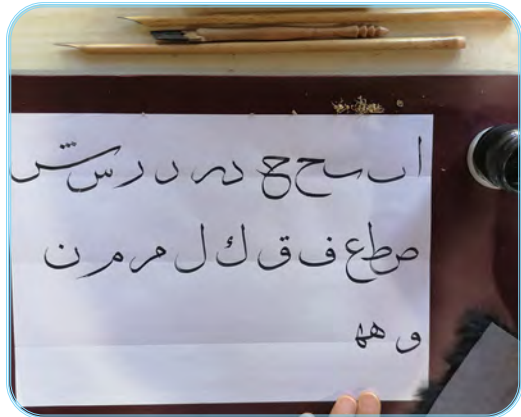 ا ٮ ح ج د ر ر س ش
ص ط ع ف ق ك ل م م ن
و ه ه